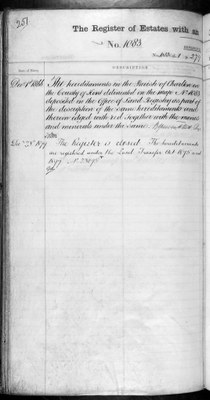 251
The Register of Estates with an
No. 1083
DESCRIPTION
Dec 1st 1868 The hereditaments in the Parish of Charlton in
the County of Kent delineated on the map No. 1083
deposited in the Office of Land Registry as part of
the description of the same hereditaments and
therein edged with red together with the mines
and minerals under the same.
1899 The Register is closed. The hereditaments
are registered under the Land Transfer Acts 1875 and
1897